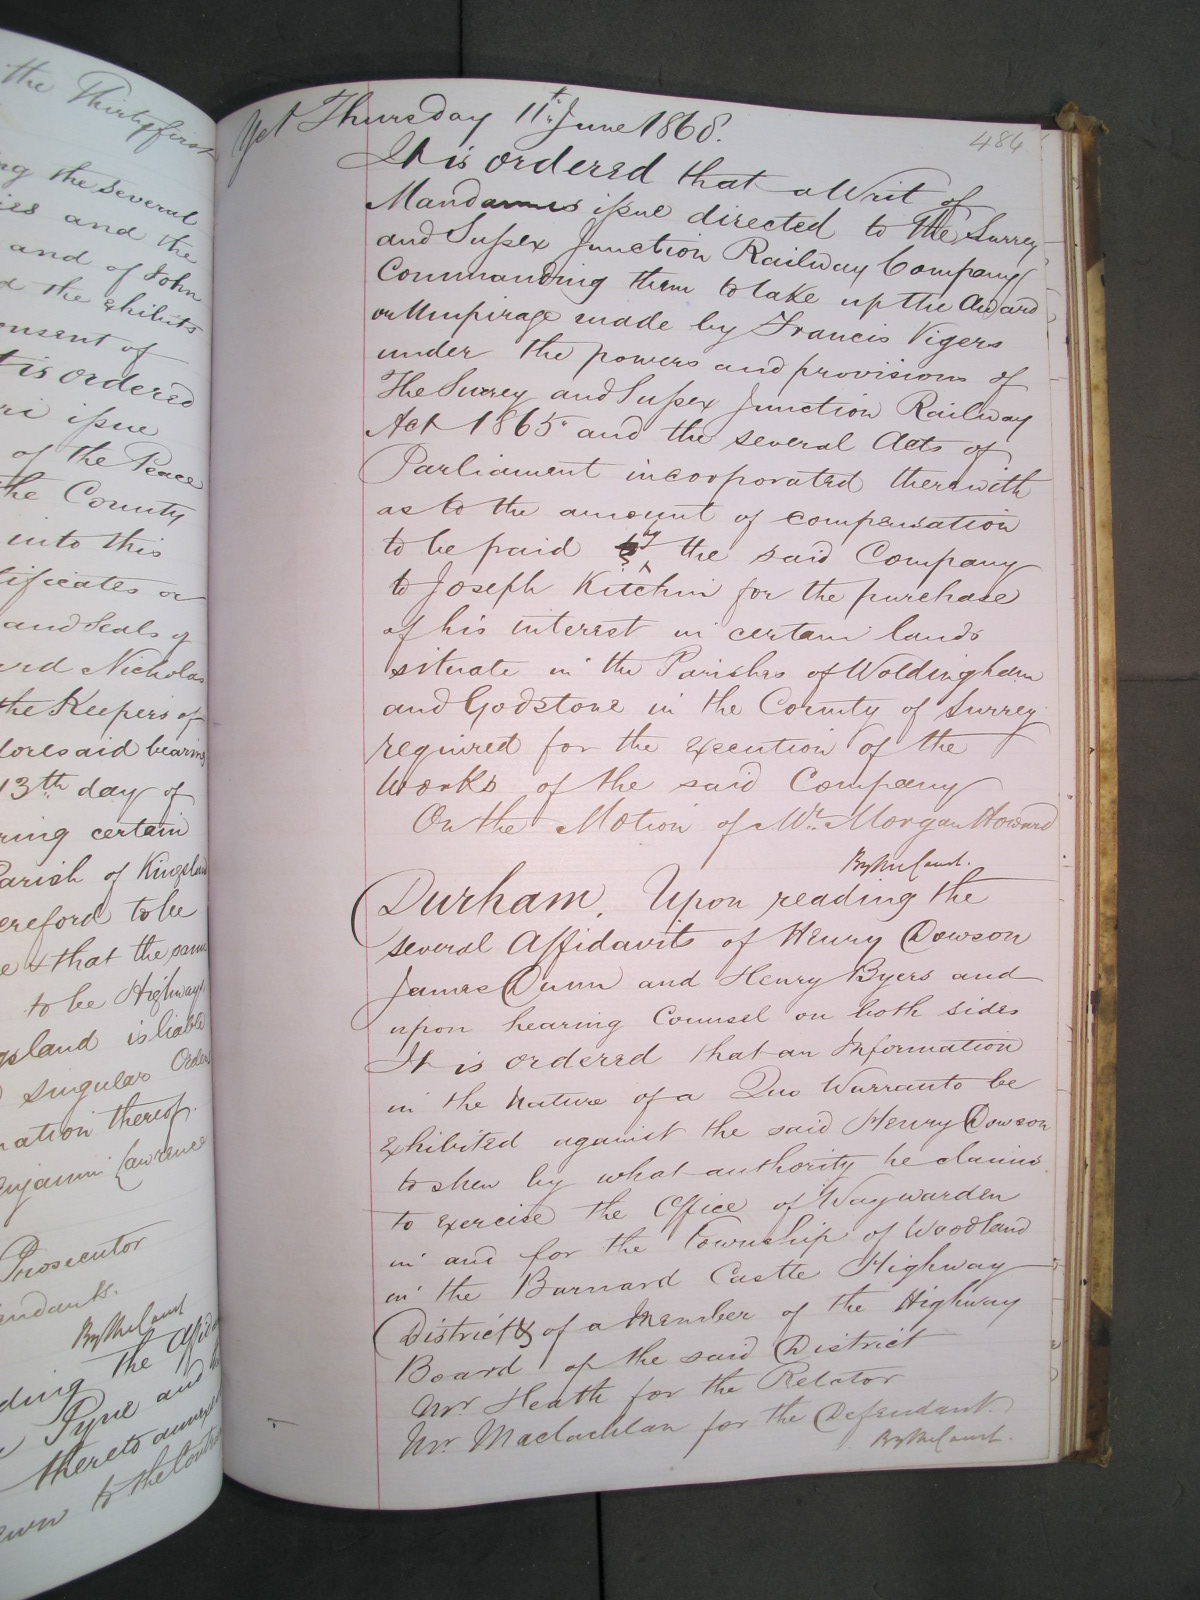 the Thirtyfirst
ng the several
ies and the
and of John
d the exhibits
onsent of
t is ordered
ri issue
of the Peace
the County
into this
tificates or
and Seals of
rd Nicholas
the Keepers of
foresaid bearing
13th day of
ring certain
Parish of Kingsland
ereford to be
e & that the same
to be Highways
gsland is liable
singular Orders
mation thereof.
enjamin Lawrence
Prosecutor
endants.
By the Court
ding the
Pyne and
thereto annexed
to the
Yet Thursday 11th June 1868.
486
It is ordered that a Writ of
Mandamus issue directed to The Surrey
and Sussex Junction Railway Company
Commanding them to take up the Award
or Umpirage made by Francis Vigers
under the powers and provisions of
The Surrey and Sussex Junction Railway
Act 1865 and the several Acts of
Parliament incorporated therewith
as to the amount of compensation
to be paid by the said Company
to Joseph Kitchin for the purchase
of his interest in certain lands
situate in the Parishes of Woldingham
and Godstone in the County of Surrey
required for the execution of the
Works of the said Company
On the Motion of Mr. Morgan Howard
By the Court.
Durham. Upon reading the
several Affidavits of Henry Dowson
James Dunn and Henry Byers and
upon hearing Counsel on both sides
It is ordered that an Information
in the nature of a Quo Warranto be
exhibited against the said Henry Dowson
to shew by what authority he claims
to exercise the Office of Waywarden
in and for the Township of Woodland
in the Barnard Castle Highway
District & of a Member of the Highway
Board of the said District
Mr. Heath for the Relator
Mr. Maclachlan for the Defendant.
By the Court.